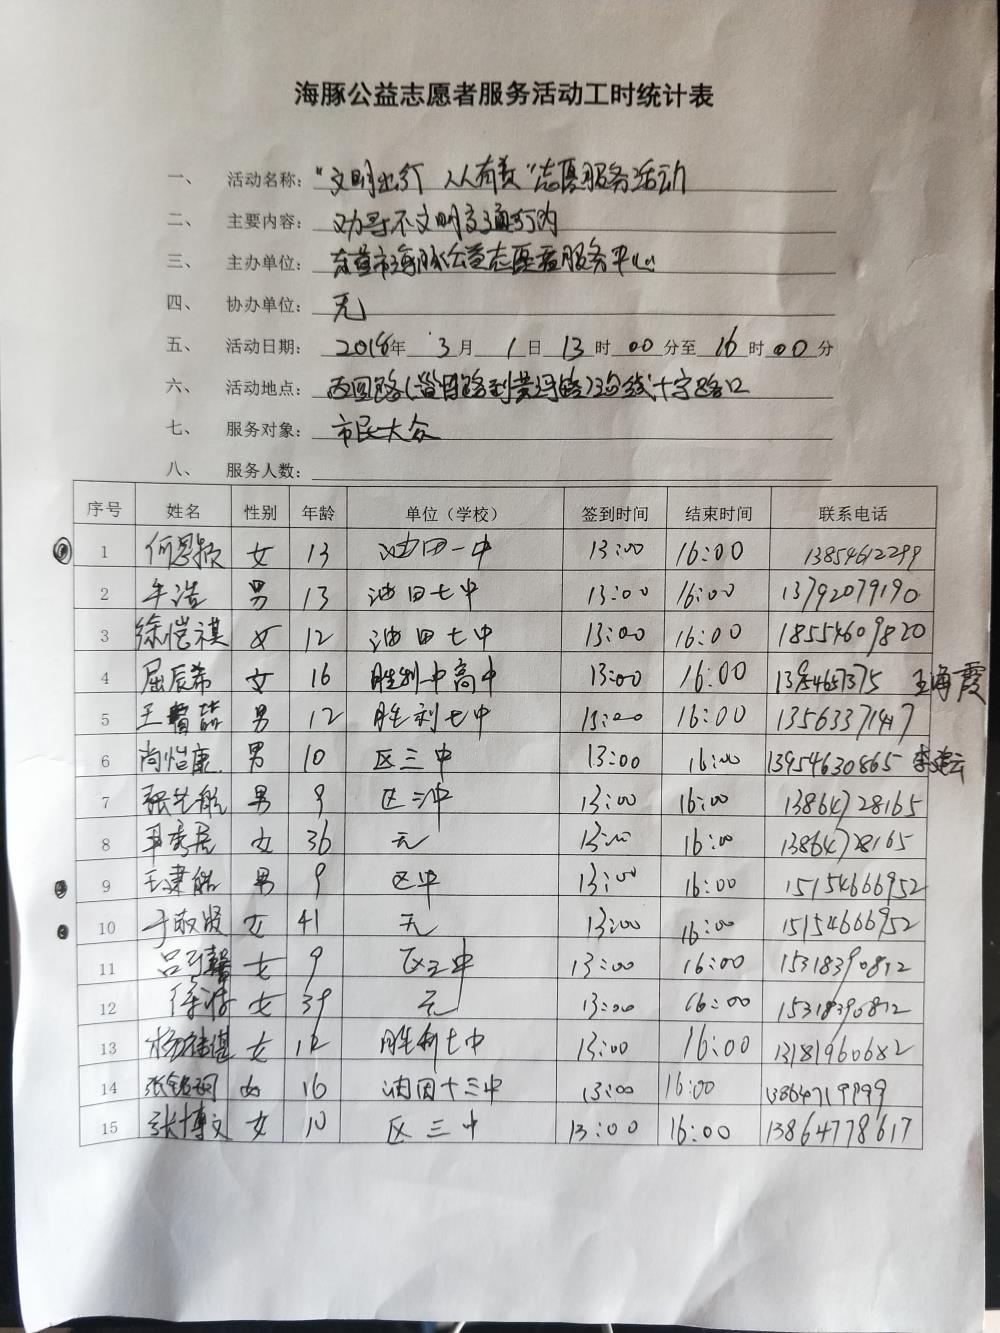 海豚公益志愿者服务活动工时统计表
一、 活动名称： “文明出行 人人有责”志愿服务活动
二、 主要内容： 劝导不文明交通行为
三、 主办单位： 东营市海豚公益志愿者服务中心
四、 协办单位： 无
五、 活动日期： 2018年 3月 1日 13时 00分至 16时 00分
六、 活动地点： 西四路(淄博路到黄河路)沿线十字路口
七、 服务对象： 市民大众
八、 服务人数：
序号 姓名 性别 年龄 单位（学校） 签到时间 结束时间 联系电话
1 何思颖 女 13 油田一中 13:00 16:00 13854612299
2 牟浩 男 13 油田七中 13:00 16:00 13792079190
3 徐恺祺 女 12 油田七中 13:00 16:00 18554609820
4 屈辰希 女 16 胜利一中高中 13:00 16:00 王海霞
5 王 男 12 胜利七中 13:00 16:00
6 尚怡康 男 10 区三中 13:00 16:00 13954630865 李建云
7 张艺航 男 9 区三中 13:00 16:00 13864728165
8 女 36 无 13:00 16:00 13864728165
9 王建皓 男 9 区中 13:00 16:00 15154666952
10 于敬殴 女 41 无 13:00 16:00 15154666952
11 吕 女 9 区三中 13:00 16:00 15318390812
12 徐 女 39 无 13:00 16:00 15318390812
13 杨 女 12 胜利七中 13:00 16:00 13181960682
14 张铭珂 女 16 油田十三中 13:00 16:00 13864719999
15 张博文 女 10 区三中 13:00 16:00 13864778617